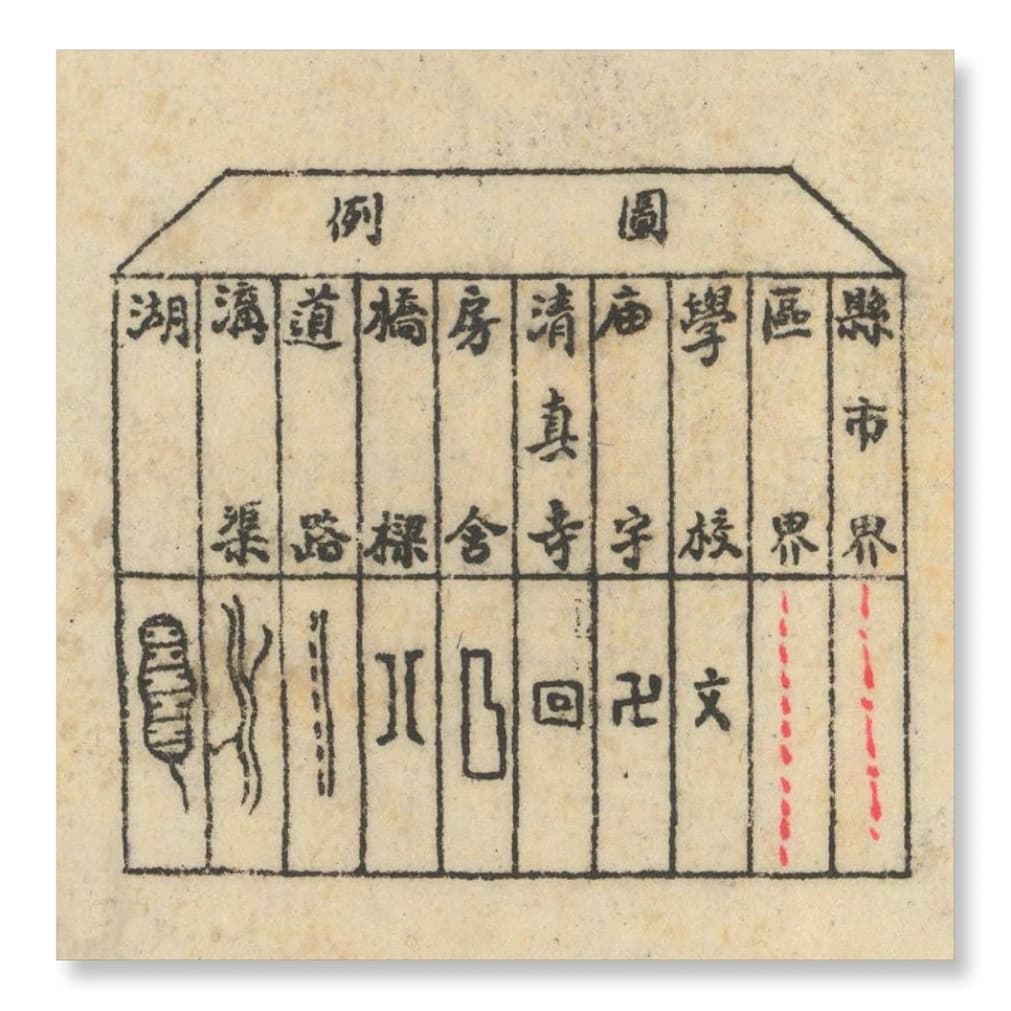 圖例
縣市界
區界
學校
庙宇
清真寺
房舍
橋樑
道路
溝渠
湖
文
卍
回